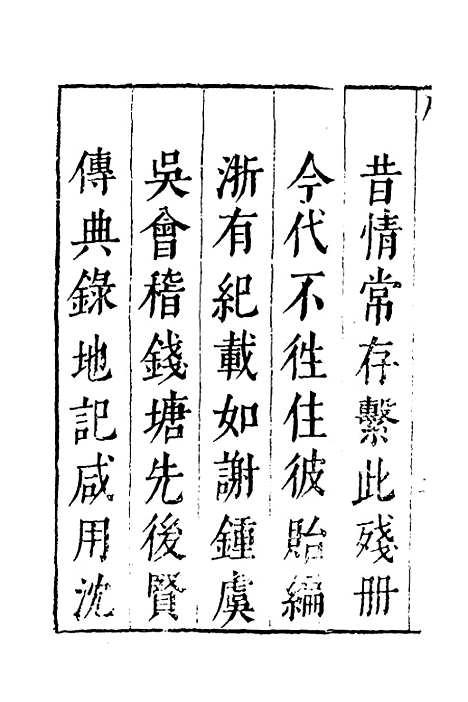 昔情常存繫此殘册
今代不徃住彼貽編
浙有紀載如謝鍾虞
吳會稽錢塘先後賢
傳典錄地記咸用沈